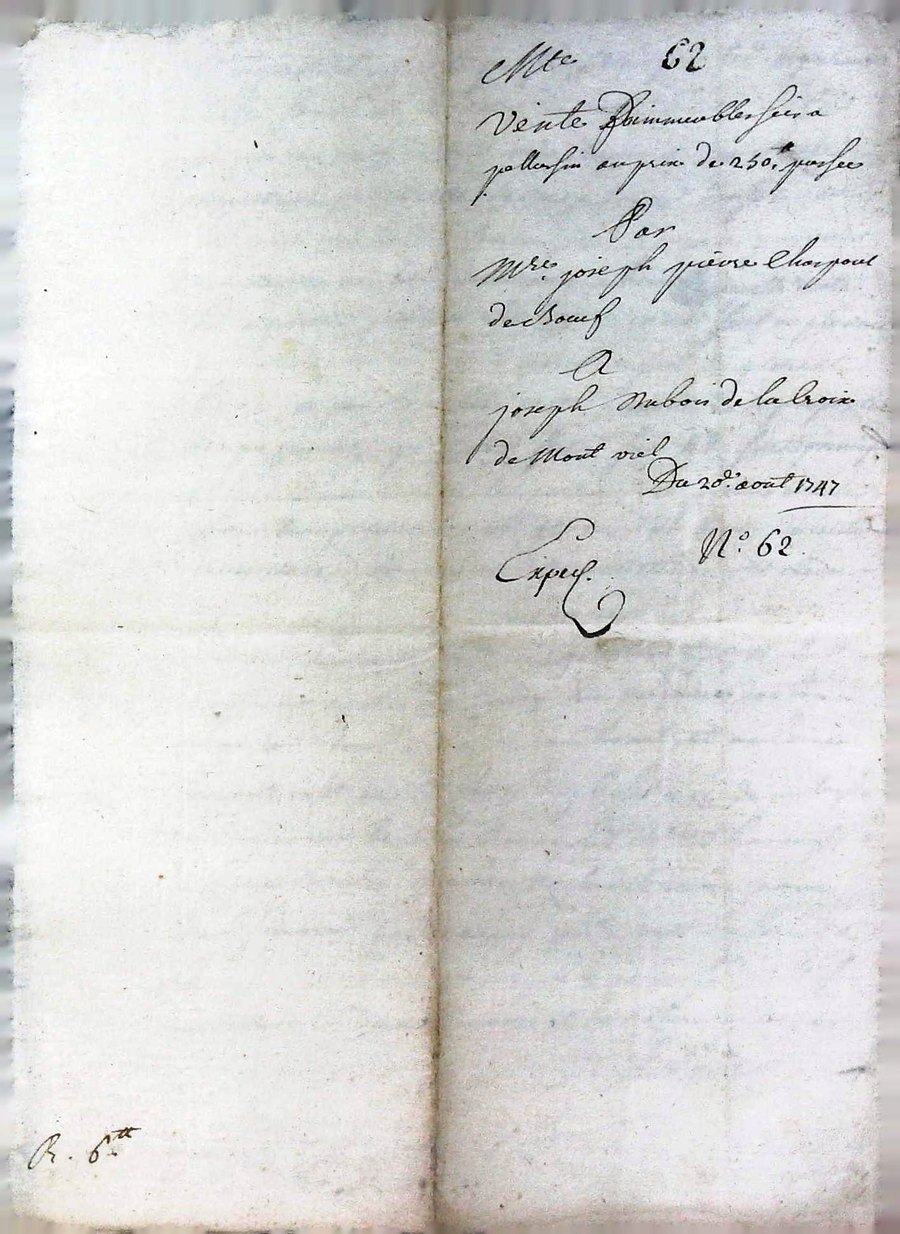 Mte 62
Vente D'immeubles scis a
pellussin au prix de 250ᵗᵗ passée
Par
Mre joseph pierre Charpout
de Boeuf
A
joseph Dubois de la Croix
de Mont viel
Du 20e. aout 1747
N° 62.
Exped.
R. 6ᵗᵗ